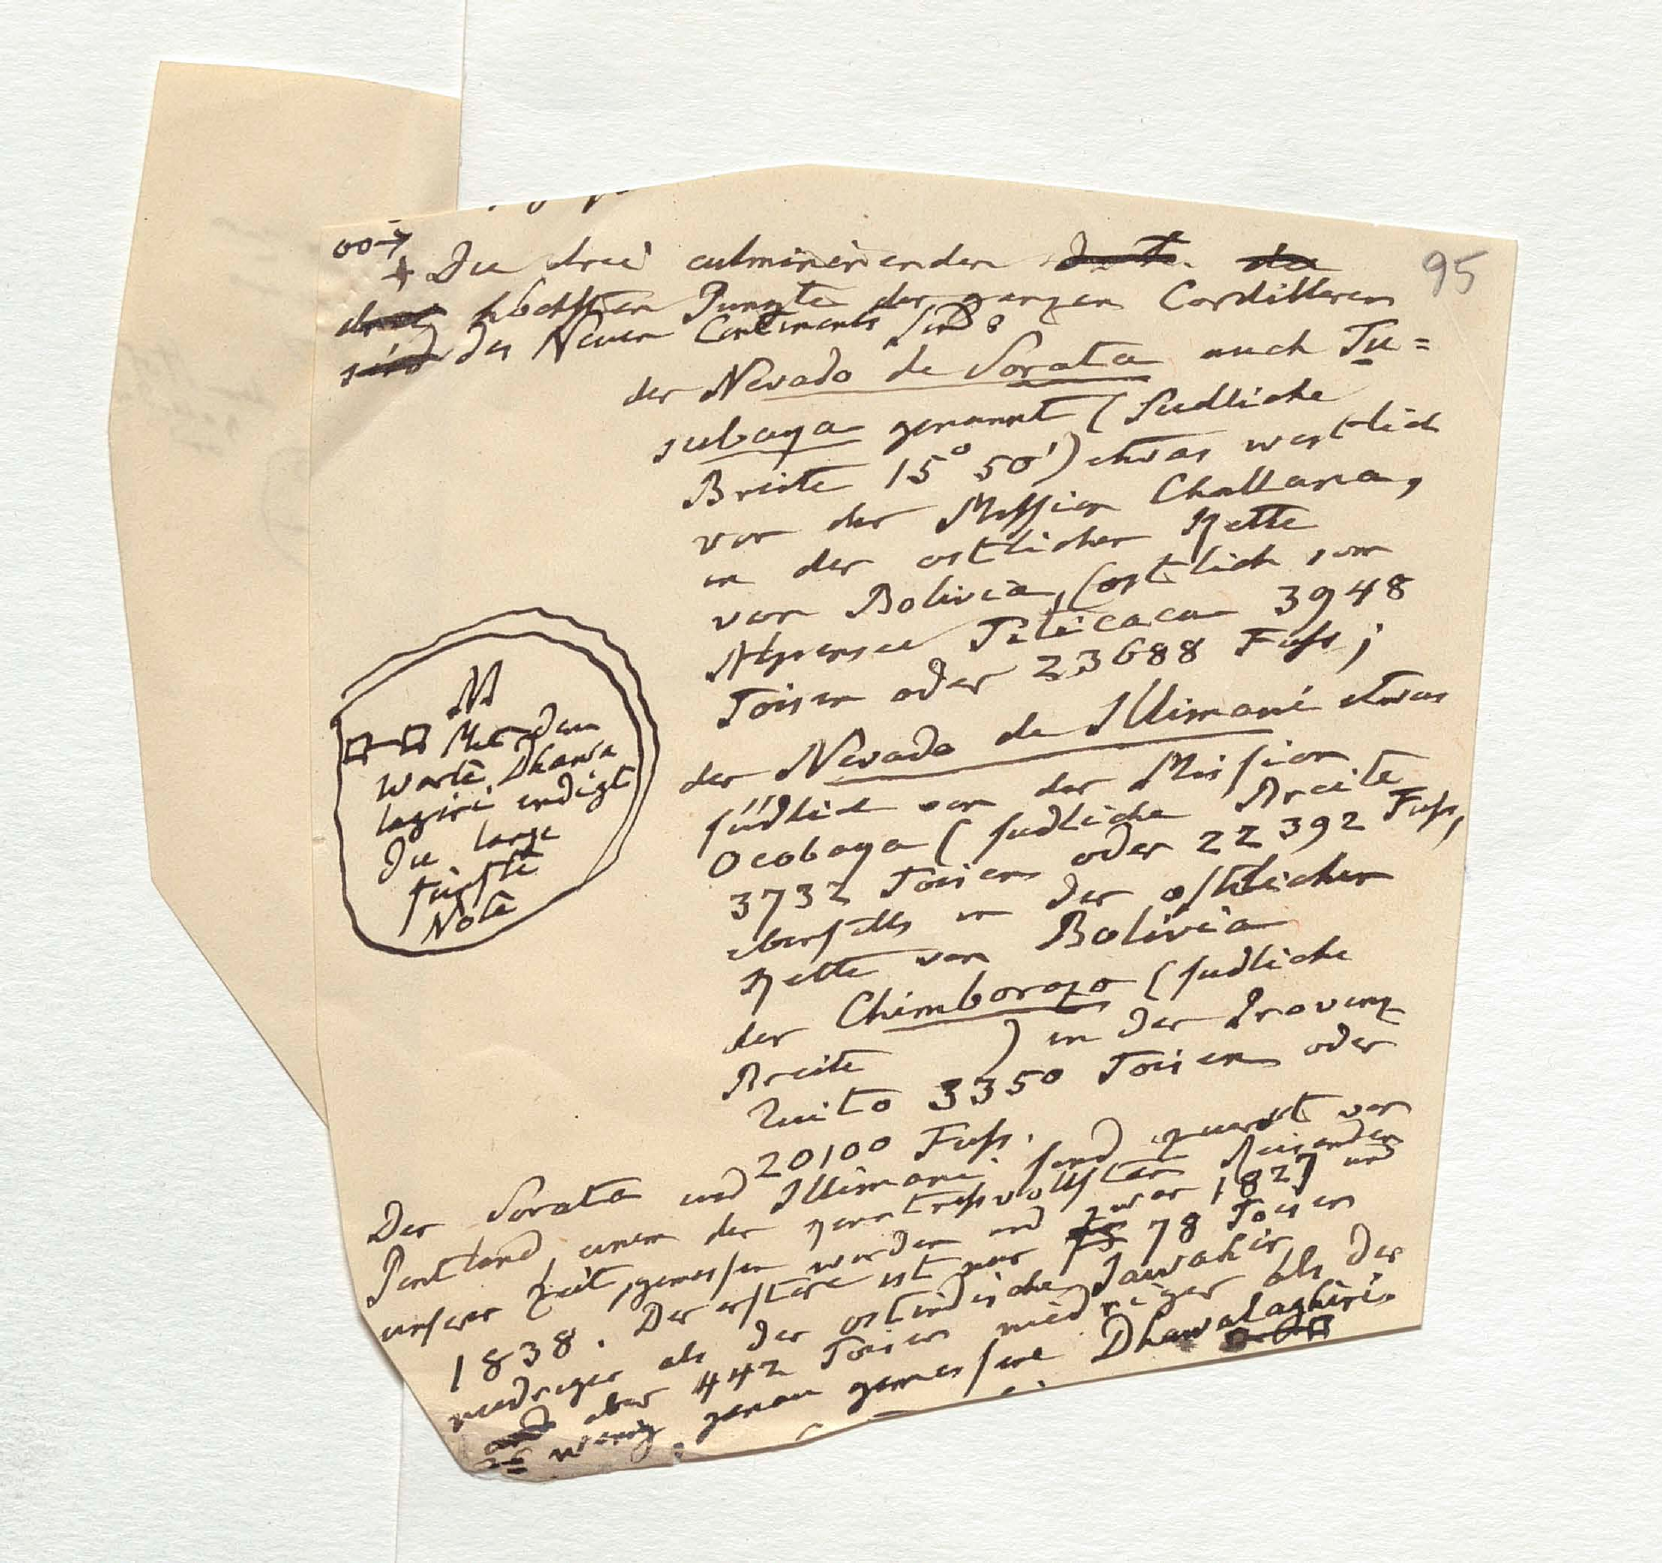 95
Die drei culminirenden
drei höchsten Puncte der ganzen Cordilleren
sind des Neuen Continents sind:
der Nevado de Sorata auch Tu=
subaya genannt (südliche
Breite 15° 50') etwas westlich
von der Mission Challana,
in der ostlichen Kette
von Bolivia, (ostlich vom
Alpensee Titicaca 3948
Toisen oder 23688 Fuss;
der Nevado de Illimani etwas
südlich von der Mission
Ocobaya (sudliche Breite
3732 Toisen oder 22392 Fuss,
ebenfalls in der ostlichen
Kette von Bolivia
der Chimborazo (sudliche
Breite ) in der Provinz
Quito 3350 Toisen oder
20100 Fuss.
Der Sorata und Illimani sind zuerst von
Pentland, einem der kenntnissvollsten Reisenden
unserer Zeit, gemessen worden und zwar 1827 und
1838. Der erstere ist nur 78 Toisen
niedriger als der ostindische Jawahir
und aber 442 Toisen niedriger als der
wenig genau gemessene Dhawalaghiri.
M
Mit dem
Worte Dhawa
lagiri endigt
die lange
fünfte
Note